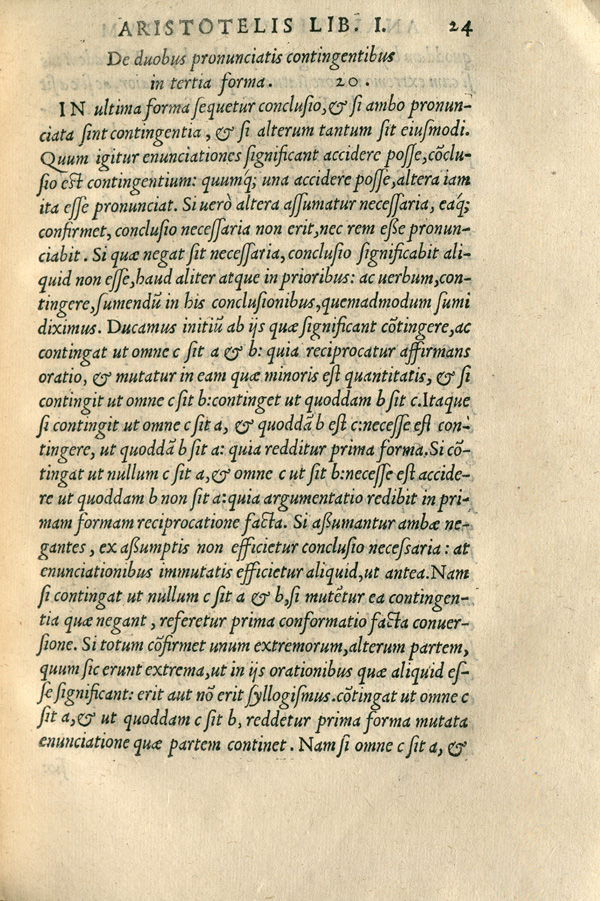 ARISTOTELIS LIB. I. 24
De duobus pronunciatis contingentibus
in tertia forma. 20.
IN ultima forma sequetur conclusio, & si ambo pronun-
ciata sint contingentia, & si alterum tantum sit eiusmodi.
Quum igitur enunciationes significant accidere posse, cōclu-
sio est contingentium: quumq́; una accidere posse, altera iam
ita esse pronunciat. Si uerò altera assumatur necessaria, eaq́;
confirmet, conclusio necessaria non erit, nec rem esse pronun-
ciabit. Si quæ negat sit necessaria, conclusio significabit ali-
quid non esse, haud aliter atque in prioribus: ac uerbum, con-
tingere, sumendū in his conclusionibus, quemadmodum sumi
diximus. Ducamus initiū ab ijs quæ significant cōtingere, ac
contingat ut omne c sit a & b: quia reciprocatur affirmans
oratio, & mutatur in eam quæ minoris est quantitatis, & si
contingit ut omne c sit b: continget ut quoddam b sit c. Itaque
si contingit ut omne c sit a, & quoddā b est c: necesse est con-
tingere, ut quoddā b sit a: quia redditur prima forma. Si cō-
tingat ut nullum c sit a, & omne c ut sit b: necesse est accide-
re ut quoddam b non sit a: quia argumentatio redibit in pri-
mam formam reciprocatione facta. Si assumantur ambæ ne-
gantes, ex assumptis non efficietur conclusio necessaria: at
enunciationibus immutatis efficietur aliquid, ut antea. Nam
si contingat ut nullum c sit a & b, si mutētur ea contingen-
tia quæ negant, referetur prima conformatio facta conuer-
sione. Si totum cōfirmet unum extremorum, alterum partem,
quum sic erunt extrema, ut in ijs orationibus quæ aliquid es-
se significant: erit aut nō erit syllogismus. cōtingat ut omne c
sit a, & ut quoddam c sit b, reddetur prima forma mutata
enunciatione quæ partem continet. Nam si omne c sit a, &